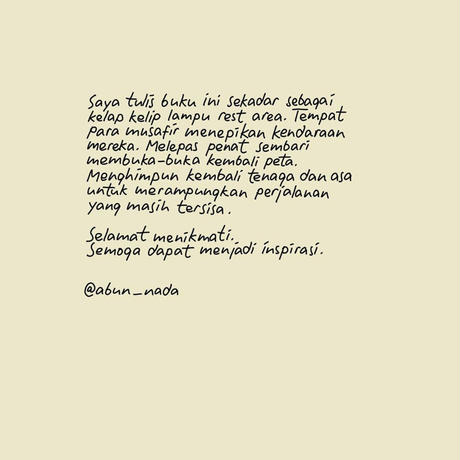 Saya tulis buku ini sekadar sebagai
kelap kelip lampu rest area. Tempat
para musafir menepikan kendaraan
mereka. Melepas penat sembari
membuka-buka kembali peta.
Menghimpun kembali tenaga dan asa
untuk merampungkan perjalanan
yang masih tersisa.
Selamat menikmati.
Semoga dapat menjadi inspirasi.
@abun_nada